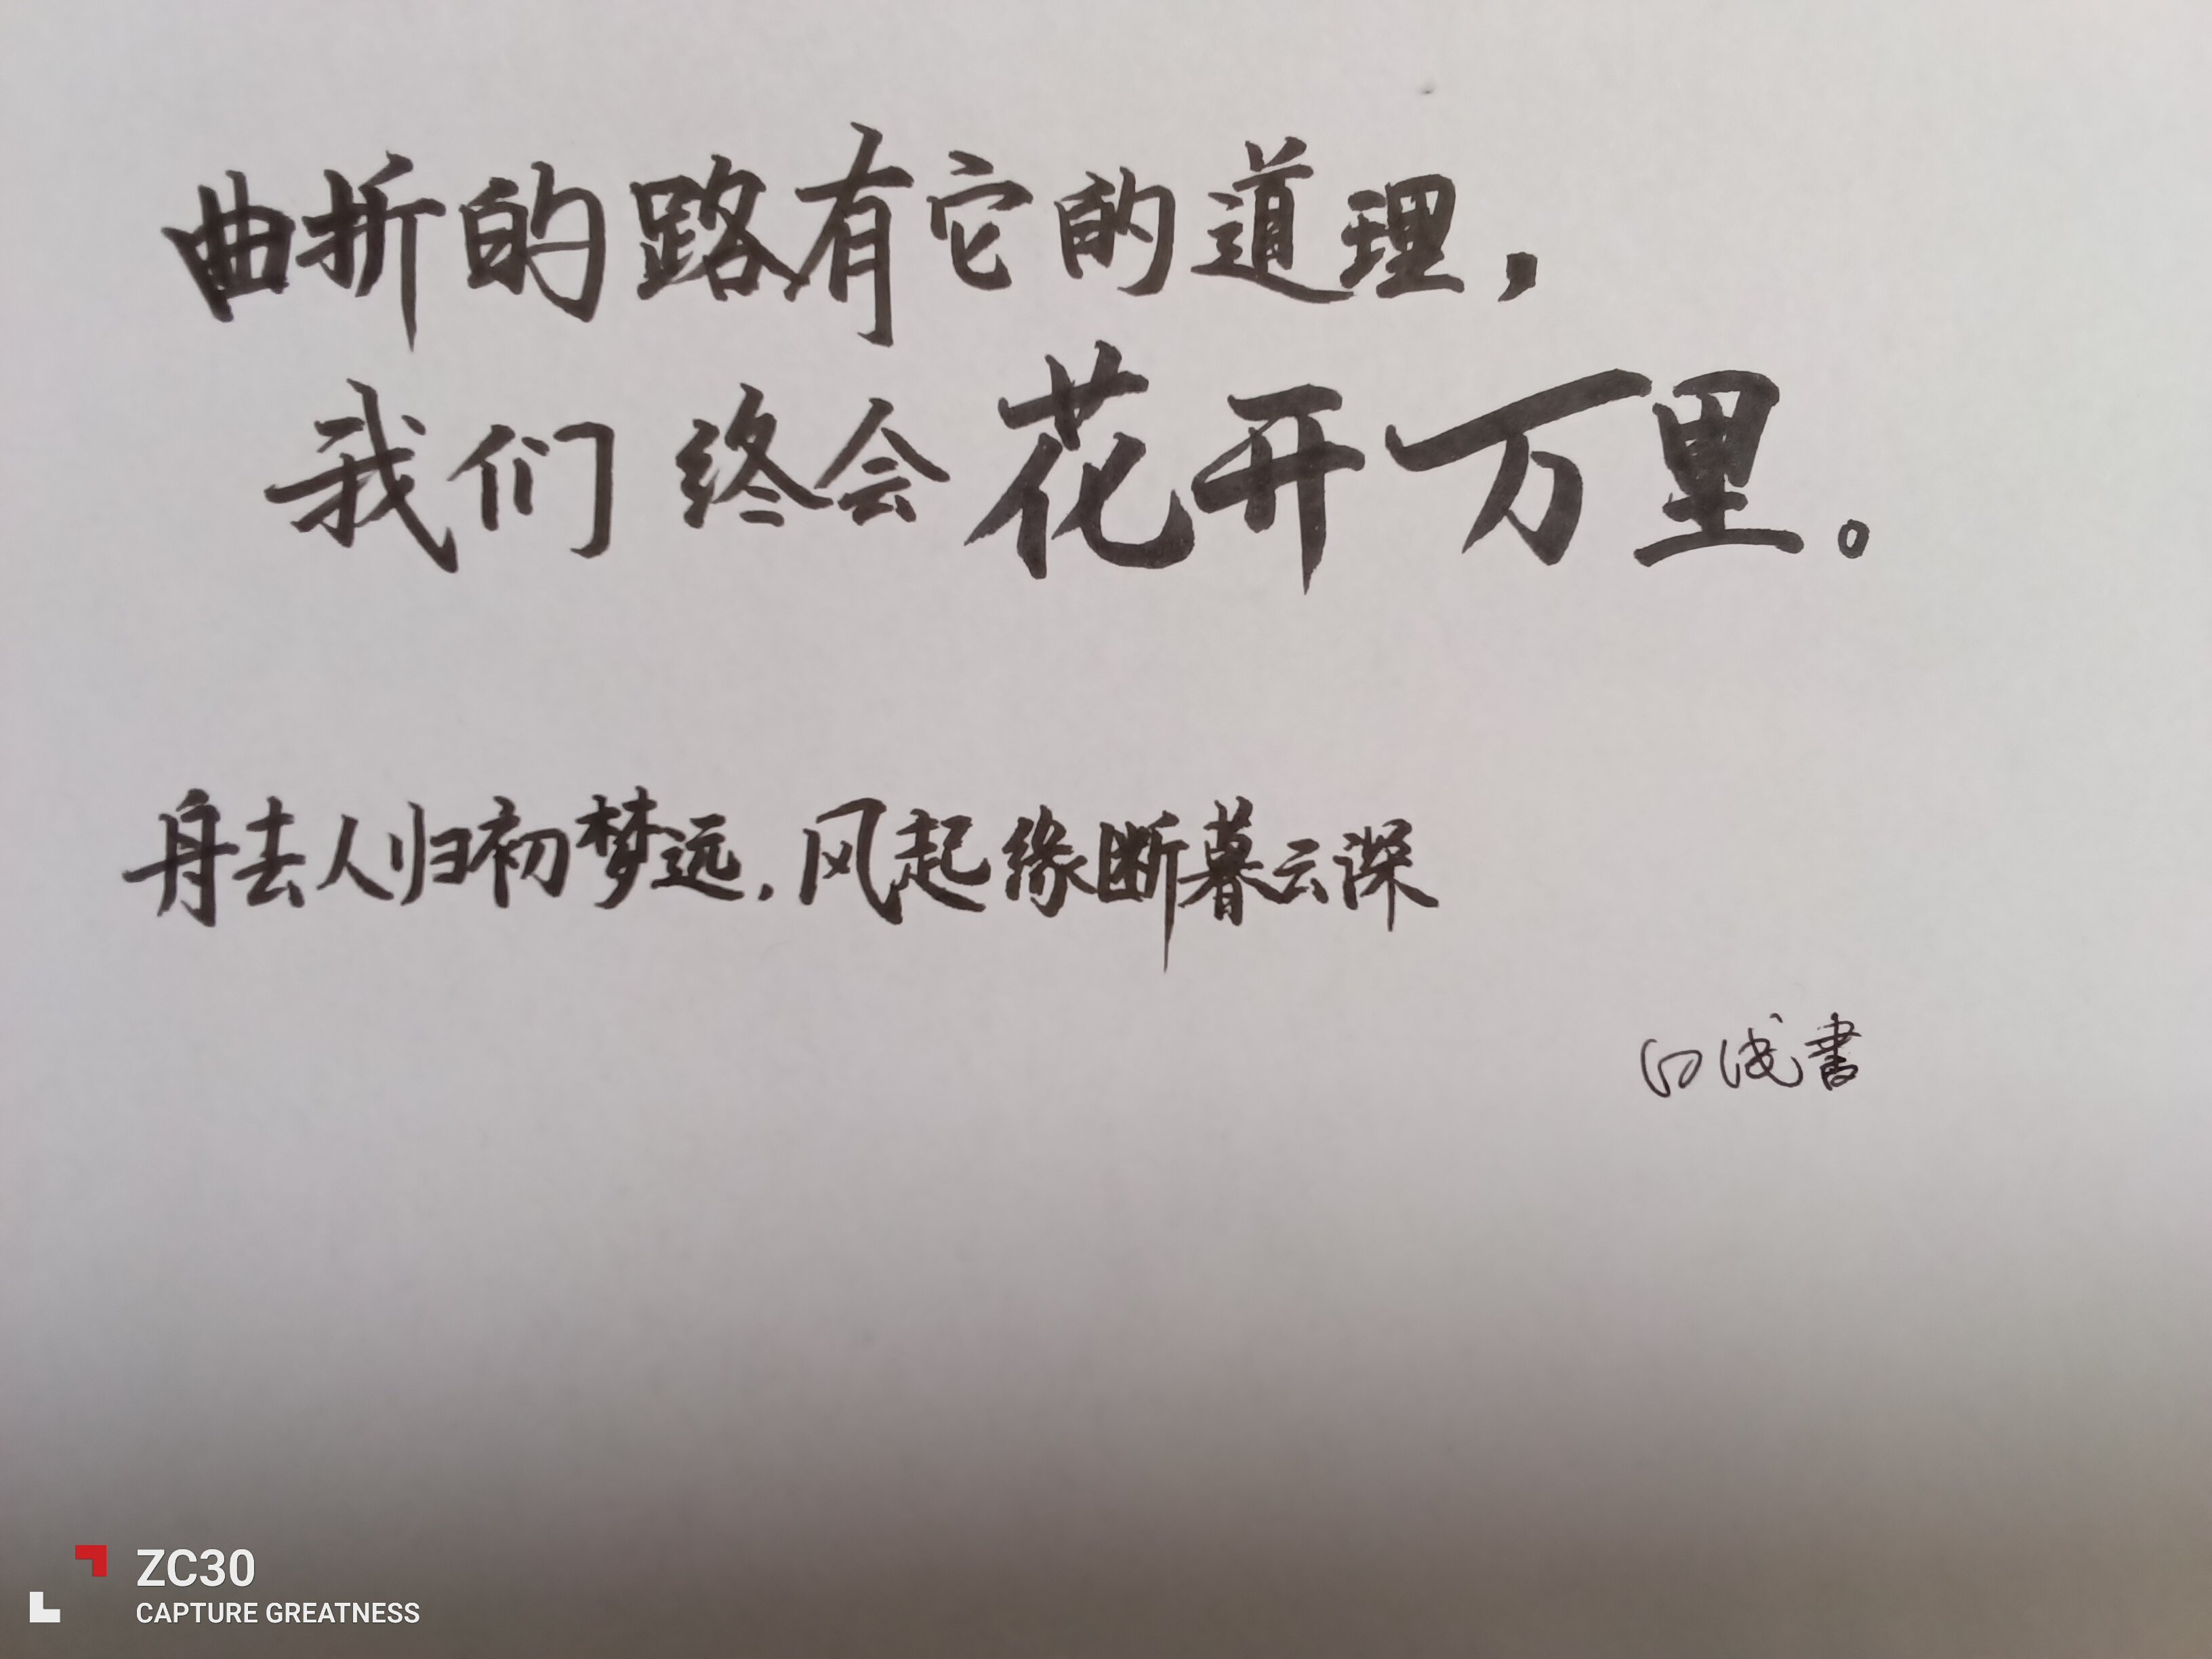 曲折的路有它的道理，
我们终会花开万里。
舟去人归初梦远，风起缘断暮云深
白浅書
ZC30
CAPTURE GREATNESS